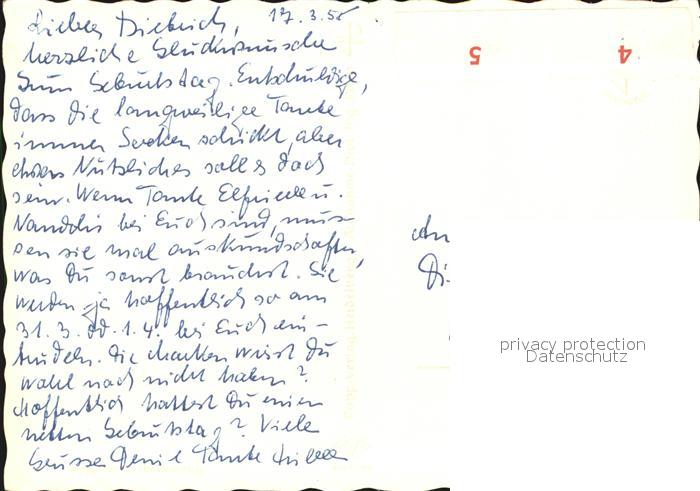 17.3.56
Lieber Dietrich,
herzliche Glückwünsche
zum Geburtstag. Entschuldige,
dass die langweilige Tante
immer Socken schickt, aber
etwas Nützliches soll es doch
sein. Wenn Tante Elfriede u.
bei Euch sind, müs-
sen sie mal auskundschaften,
was Du sonst brauchst. Sie
werden ja hoffentlich so am
31.3. od. 1.4. bei Euch ein-
trudeln. Die Marken wirst Du
wohl noch nicht haben?
Hoffentlich hattest Du einen
netten Geburtstag? Viele
Grüsse Deine Tante
5
4
An
Di
privacy protection
Datenschutz